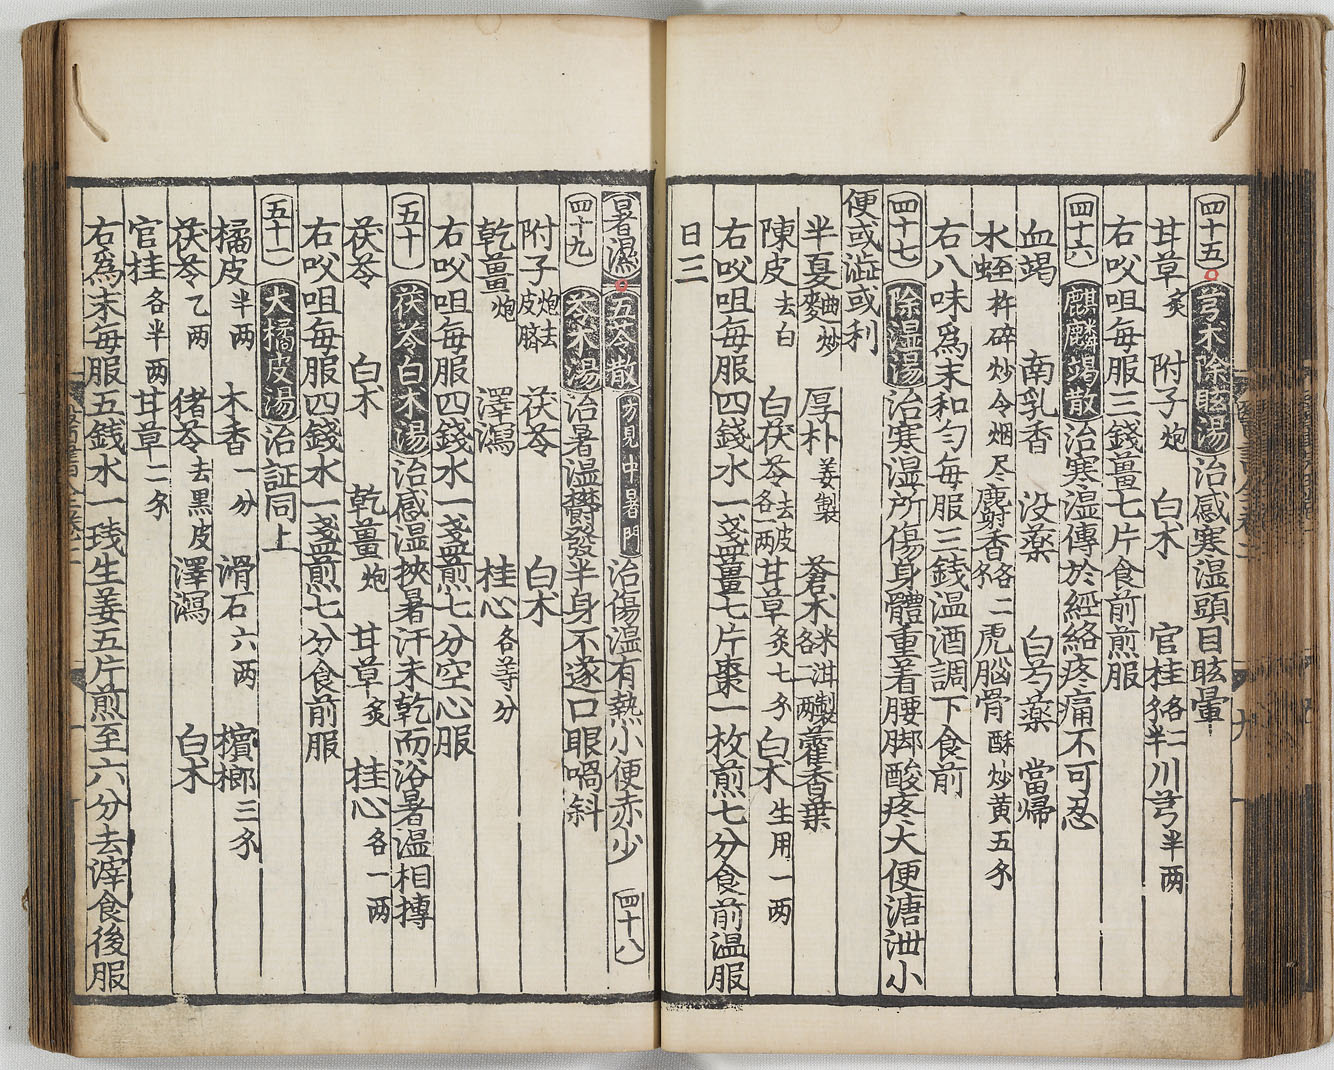 四十五 芎朮除眩湯 治感寒湿頭目眩暈
甘草炙 附子炮 白朮 官桂各二分半 川芎半两
右㕮咀每服三錢薑七片食前煎服
四十六 麒麟竭散 治寒湿傳於經絡疼痛不可忍
血竭 南乳香 没薬 白芍薬 當帰
水蛭杵碎炒令烟尽 麝香各二分 虎脳骨酥炒黄五分
右八味為末和勻每服三銭温酒調下食前
四十七 除湿湯 治寒湿所傷身體重着腰脚酸疼大便溏泄小
便或澁或利
半夏麯炒 厚朴姜製 蒼朮米泔製各二两 藿香葉
陳皮去白 白茯苓去皮各一两 甘草炙七分 白朮生用一两
右㕮咀每服四錢水一盞薑七片棗一枚煎七分食前温服
日三
暑濕 五苓散 方見中暑門 治傷温有熱小便赤少 四十八
四十九 苓朮湯 治暑温欝發半身不遂口眼喎斜
附子炮去皮臍 茯苓 白朮
乾薑炮 澤瀉 桂心各等分
右㕮咀每服四錢水一盞煎七分空心服
五十 茯苓白朮湯 治感温挾暑汗未乾而浴暑温相摶
茯苓 白朮 乾薑炮 甘草炙 桂心各一两
右㕮咀每服四錢水一盞煎七分食前服
五十一 大橘皮湯 治証同上
橘皮半两 木香一分 滑石六两 檳榔三分
茯苓乙两 猪苓去黒皮 澤瀉 白朮
官桂各半两 甘草二分
右為末每服五銭水一㦮生姜五片煎至六分去滓食後服